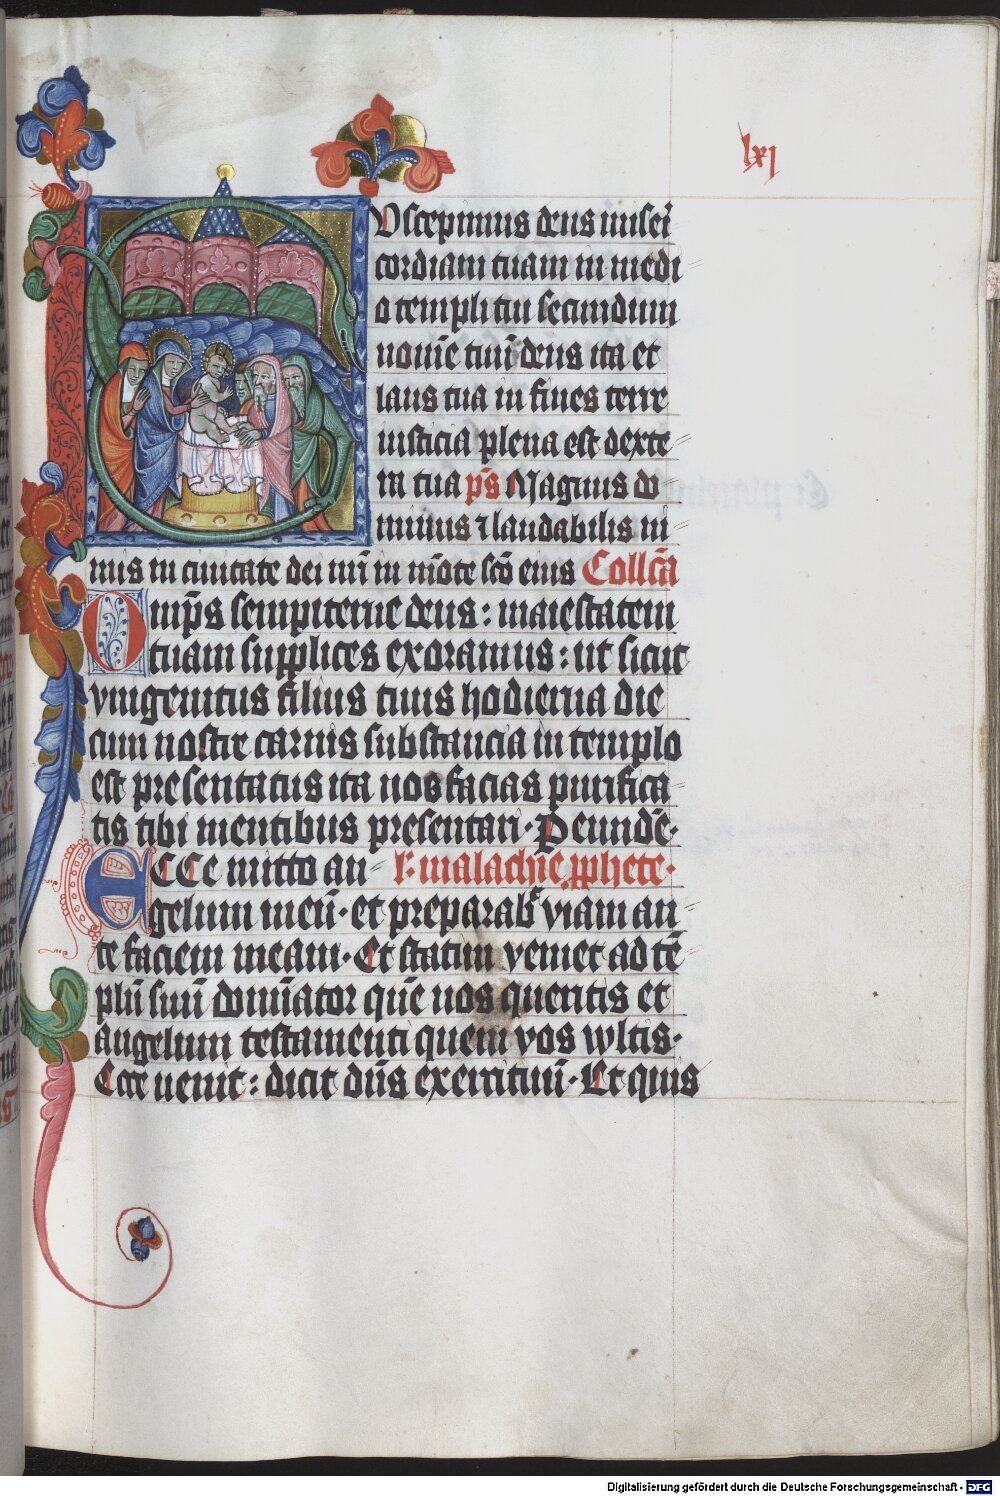 lxj
Uscepimus deus miseri
cordiam tuam in medi
o templi tui secundum
nomē tuū deus ita et
laus tua in fines terre
iusticia plena est dexte
ra tua pſ̄ Magnus do
minus ⁊ laudabilis ni
mis in ciuitate dei nrī in mōte scō eius Collcā
Omp̄s sempiterne deus : maiestatem
tuam supplices exoramus : ut sicut
vnigenitus filius tuus hodierna die
cum nostre carnis substancia in templo
est presentatus ita nos facias purifica
tis tibi mentibus presentari · P eundē ·
ECCe mitto an l· malachie ꝓphete ·
gelum meū · et preparabͭ viam an
te faciem meam · Et statim veniet ad tē
plū suū dominator quē uos queritis et
Angelum testamenti quem vos wltis ·
Ecce uenit : dicit dn̄s exercituū · Et quis
Digitalisierung gefördert durch die Deutsche Forschungsgemeinschaft - DFG